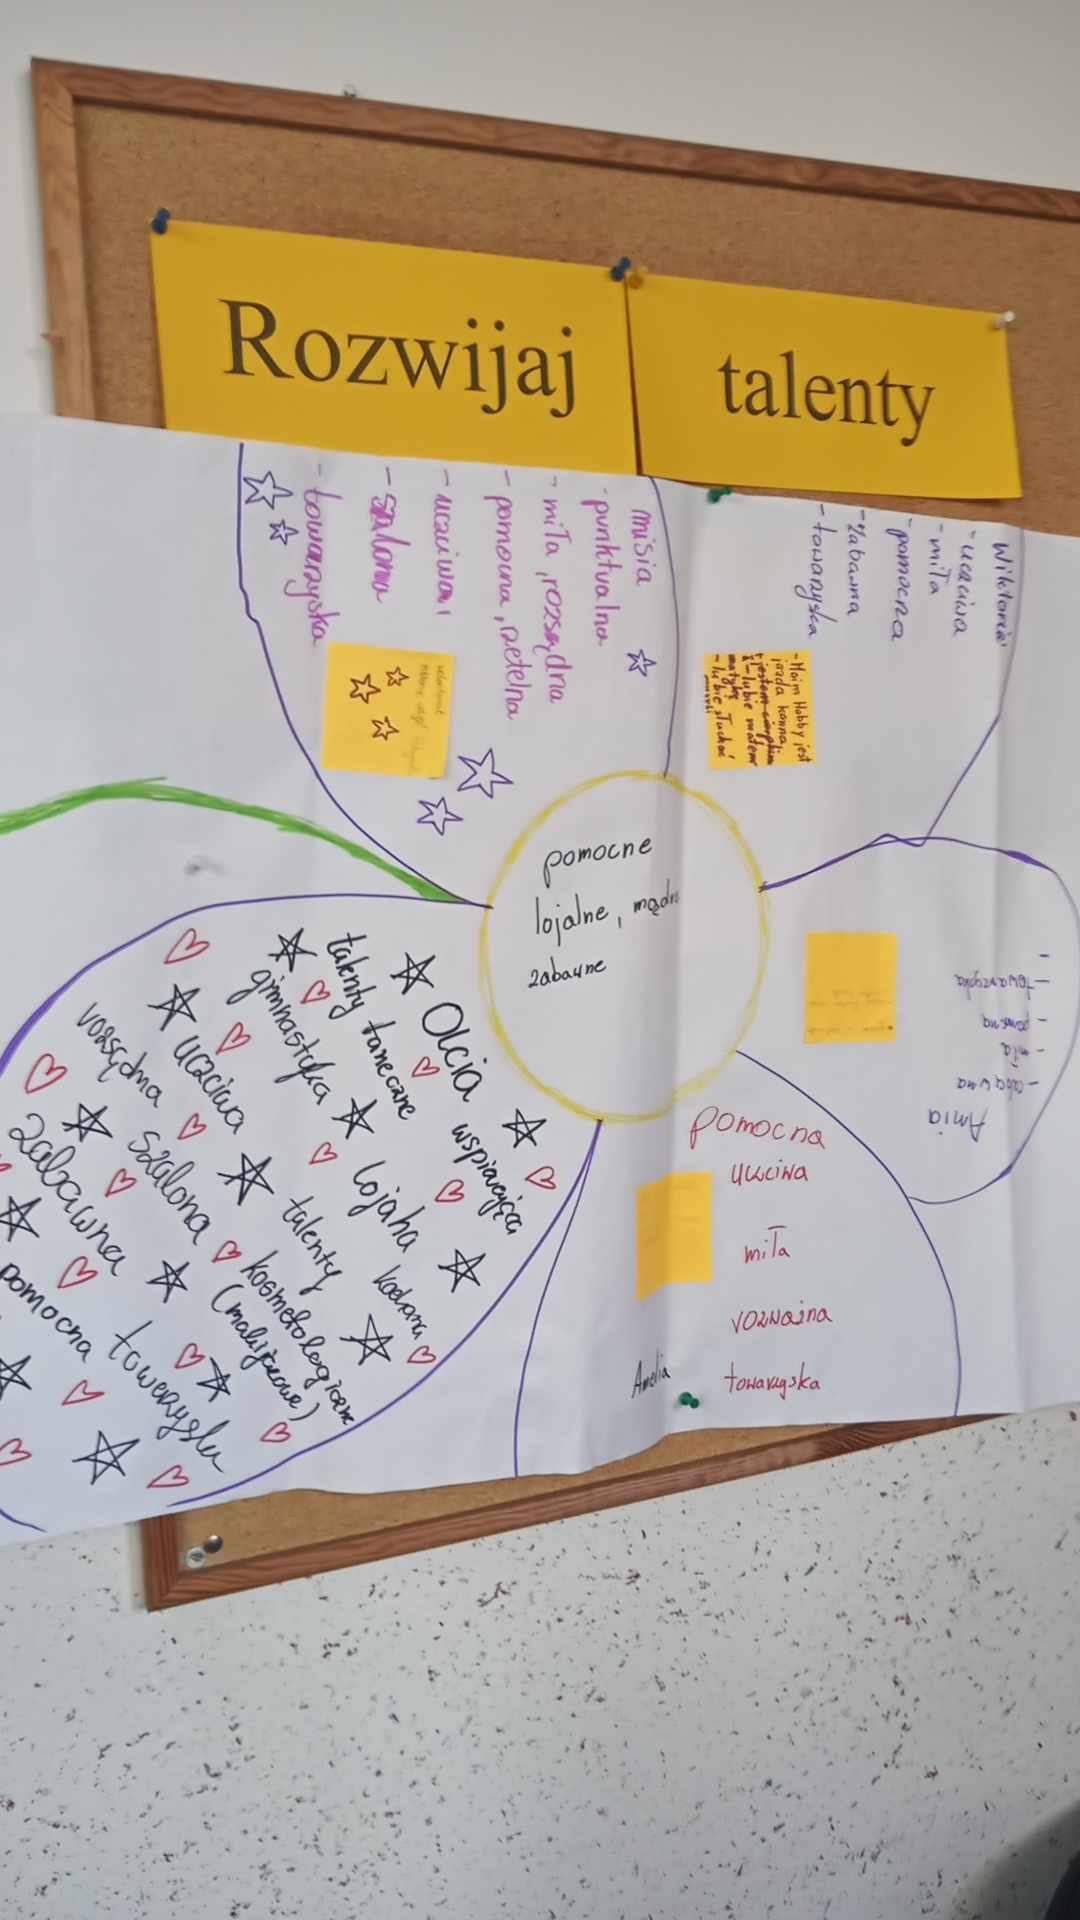 Rozwijaj talenty
misia
- punktualna
- miła, rozsądna
- pomocna, rzetelna
- uczciwa
- szalona
- towarzyska
Wiktoria
- uczciwa
- miła
- pomocna
- zabawna
- towarzyska
- Moim Hobby jest
jazda konna
- lubie matem
matykę
- lubie słuchać
pomocne
lojalne, mądre
zabawne
Ania
- miła
- pomocna
- towarzyska
pomocna
uczciwa
miła
rozważna
towarzyska
Amelia
Olcia
wspierająca
talenty taneczne
gimnastyka
lojalna
kochana
uczciwa
talenty
kosmetologiczne
rozsądna
szalona
zabawna
pomocna